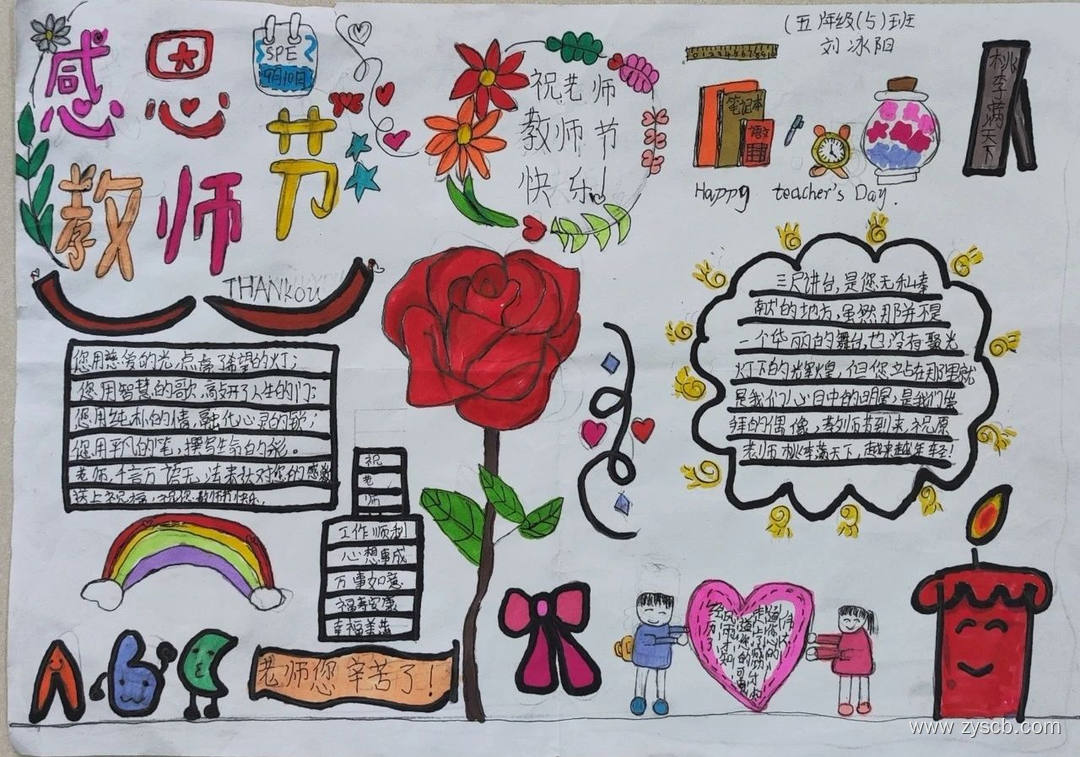 (五年级(5)班
刘冰阳
感恩
教师节
SPE
9月10日
THANKOU
祝老师
教师节
快乐!
笔记本
语文
桃李满天下
Happy teacher's Day.
三尺讲台,是您无私奉
献的地方,虽然,那并不是
一个华丽的舞台,也没有聚光
灯下的光辉煌,但您站在那里就
是我们心目中的明星,是我们崇
拜的偶像,教师节到来,祝原
老师桃李满天下,越来越年轻!
您用慈爱的光,点亮了希望的灯;
您用智慧的歌,敲开了人生的门;
您用纯朴的情,融化心灵的
您用平凡的笔,撰写生命的
老师,千言万语无法表达对您的感激
送上祝福:祝您教师节快乐.
祝
老
师
工作顺利
心想事成
万事如意
福寿安康
幸福美满
老师您辛苦了!
ABC
www.zyscb.com